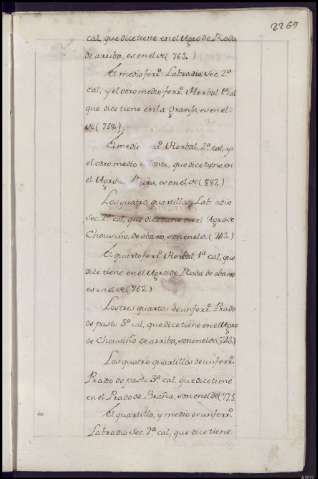 2269
cal, que dice tiene en el Agro de Roda
de arriba, es en el nº (763.)
El medio ferr.º Labradio sec.º 2.ª
cal, y el otro medio ferr.º Herbal 1.ª cal
que dice tiene en la Granja, es en el
nº (754)
El medio Herbal, 2.ª cal, y
el otro medio que dice tiene en
el Agro es en el nº (882)
Los quatro quartillos Labradio
sec.º 2.ª cal, que dice tiene en el Agro de
Chousiño, de abajo, son en el nº (742)
El quarto ferr.º Herbal, 1.ª cal, que
dice tiene en el Agro de Roda de abajo
es en el nº (762)
Los tres quartos de un ferr.º Prado
de pasto 3.ª cal, que dice tiene en el Agro
de Chousiño de arriba, son en el nº
Los quatro quartillos de un ferr.º
Prado de pasto 3.ª cal, que dice tiene
en el Prado de Braña, son en el nº (775
El quartillo, y medio de un ferr.º
Labradio sec.º 2.ª cal, que dice tiene